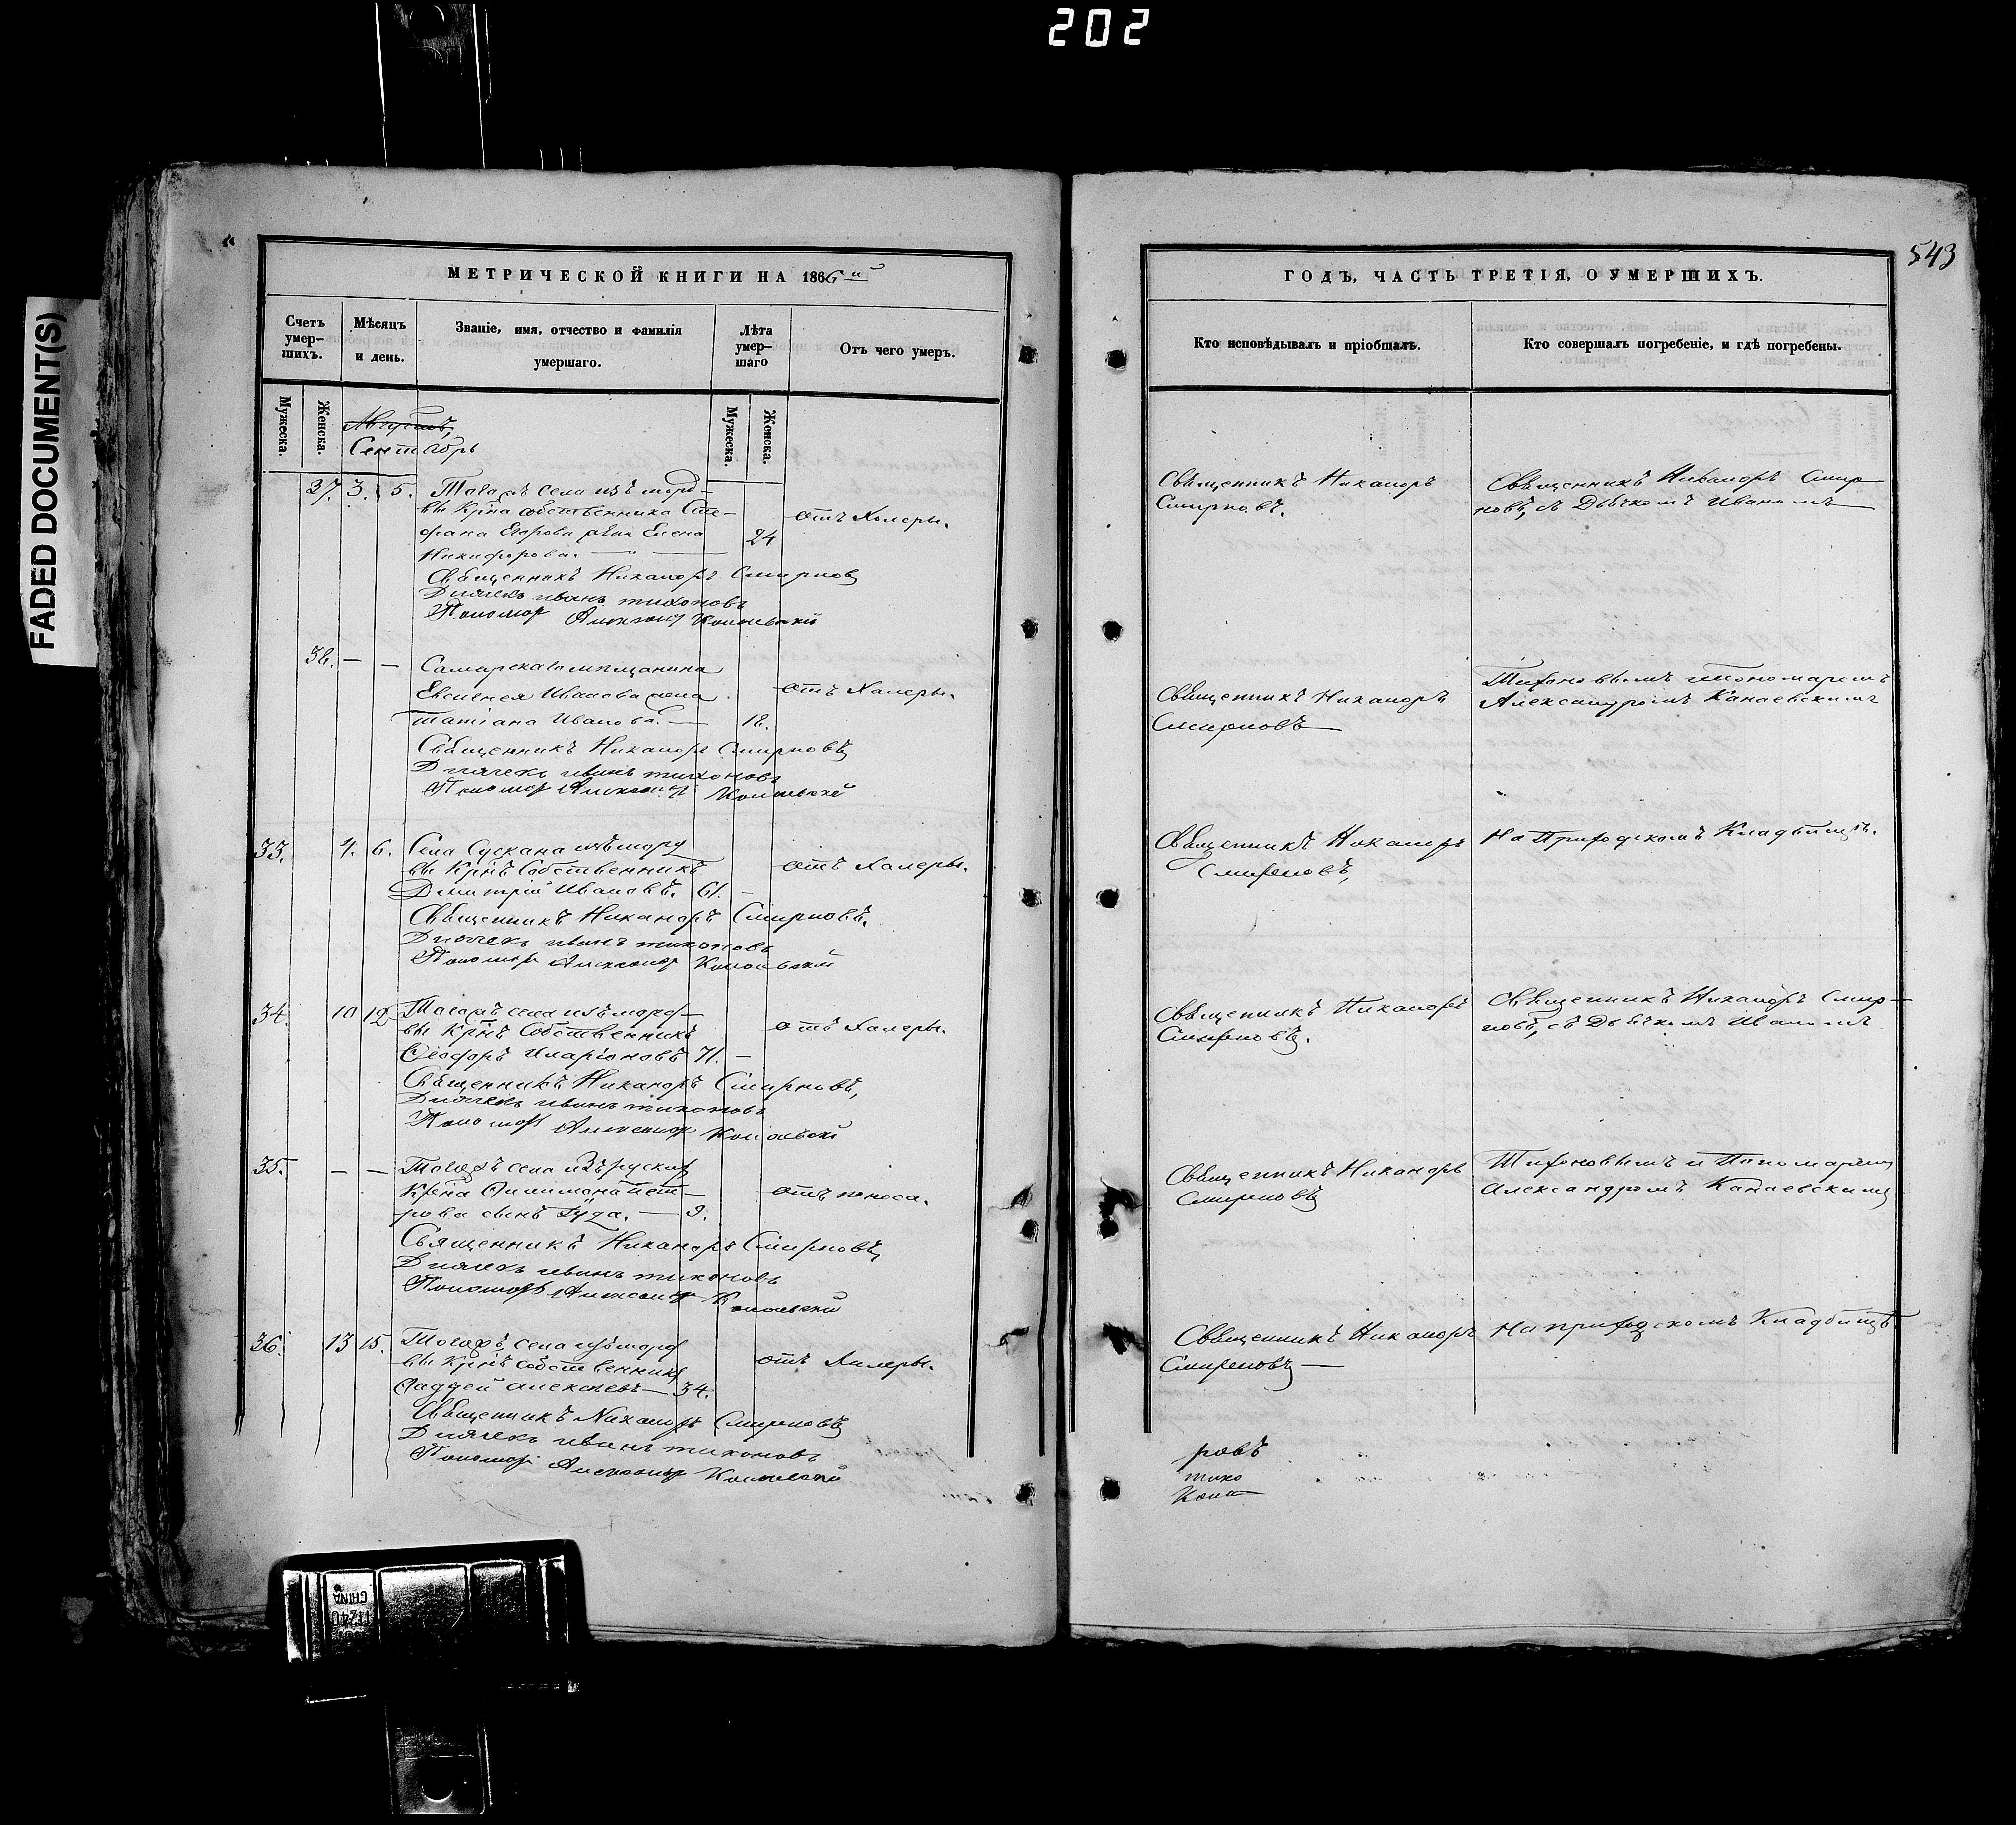 202
FADED DOCUMENT(S)
МЕТРИЧЕСКОЙ КНИГИ НА 1866 й
Счетъ умер-шихъ.
Мѣсяцъ и день.
Званіе, имя, отчество и фамилія умершаго.
Лѣта умер-шаго
Отъ чего умеръ.
Мужеска.
Женска.
Мужеска.
Женска.
Августъ,
Сентябрь
37. 3. 5. Тогожъ села изъ морд-
вы Крна собственника Сте-
фана Егорова жена Елена
Никифорова. 24 отъ Холеры.
Священникъ Никаноръ Смирновъ
Дьячекъ иванъ тихоновъ
Пономар Александр Канаевский
38. — — Самарскаго мещанина
Евсигнея Иванова жена
татіана Иванова. — 18. отъ Халеры.
Священникъ Никаноръ Смирновъ
Дьячекъ иванъ тихоновъ
Пономар Александр Канаевский
33. 4. 6. Села Сускана изъ морд
вы Крнъ Собственникъ
Дмитрій Ивановъ. 61. — отъ Халеры.
Священникъ Никаноръ Смирновъ.
Дьячекъ иванъ тихоновъ
Пономар Александр Канаевский
34. 10 12 Тогожъ села изъ морд-
вы Крнъ Собственникъ
Ѳеодоръ Иларіоновъ 71. — отъ Халеры.
Священникъ Никаноръ Смирновъ,
Дьячекъ иванъ тихоновъ
Пономар Александр Канаевский
35. — — Тогожъ села изъ руских
Крна Филимона Пет-
рова сынъ Іуда. — 9. отъ поноса.
Священникъ Никаноръ Смирновъ
Дьячекъ иванъ тихоновъ
Пономар Александр Канаевский
36. 13 15. Тогожъ села изъ морд
вы Крнъ собственникъ
Фаддей алексѣевъ — 34. отъ Халеры.
Священникъ Никаноръ Смирновъ
Дьячекъ иванъ тихоновъ
Пономар Александр Канаевский
543
ГОДЪ, ЧАСТЬ ТРЕТІЯ, О УМЕРШИХЪ.
Кто исповѣдывалъ и пріобщалъ.
Кто совершалъ погребеніе, и гдѣ погребены.
Священникъ Никаноръ
Смирновъ.
Священникъ Никаноръ Смир-
новъ, съ Дьячкомъ Иваномъ
Священникъ Никаноръ
Смирновъ
Тихоновымъ и Пономаремъ
Александромъ Канаевскимъ
Священникъ Никаноръ
Смирновъ,
На Приходскомъ Кладбищѣ.
Священникъ Никаноръ
Смирновъ.
Священникъ Никаноръ Смир-
новъ, съ Дьячкомъ Иваномъ
Священникъ Никаноръ
Смирновъ
Тихоновымъ и Пономаремъ
Александромъ Канаевскимъ
Священникъ Никаноръ
Смирновъ —
На приходскомъ Кладбищѣ.
ровъ
тихо
Кана
CHINA